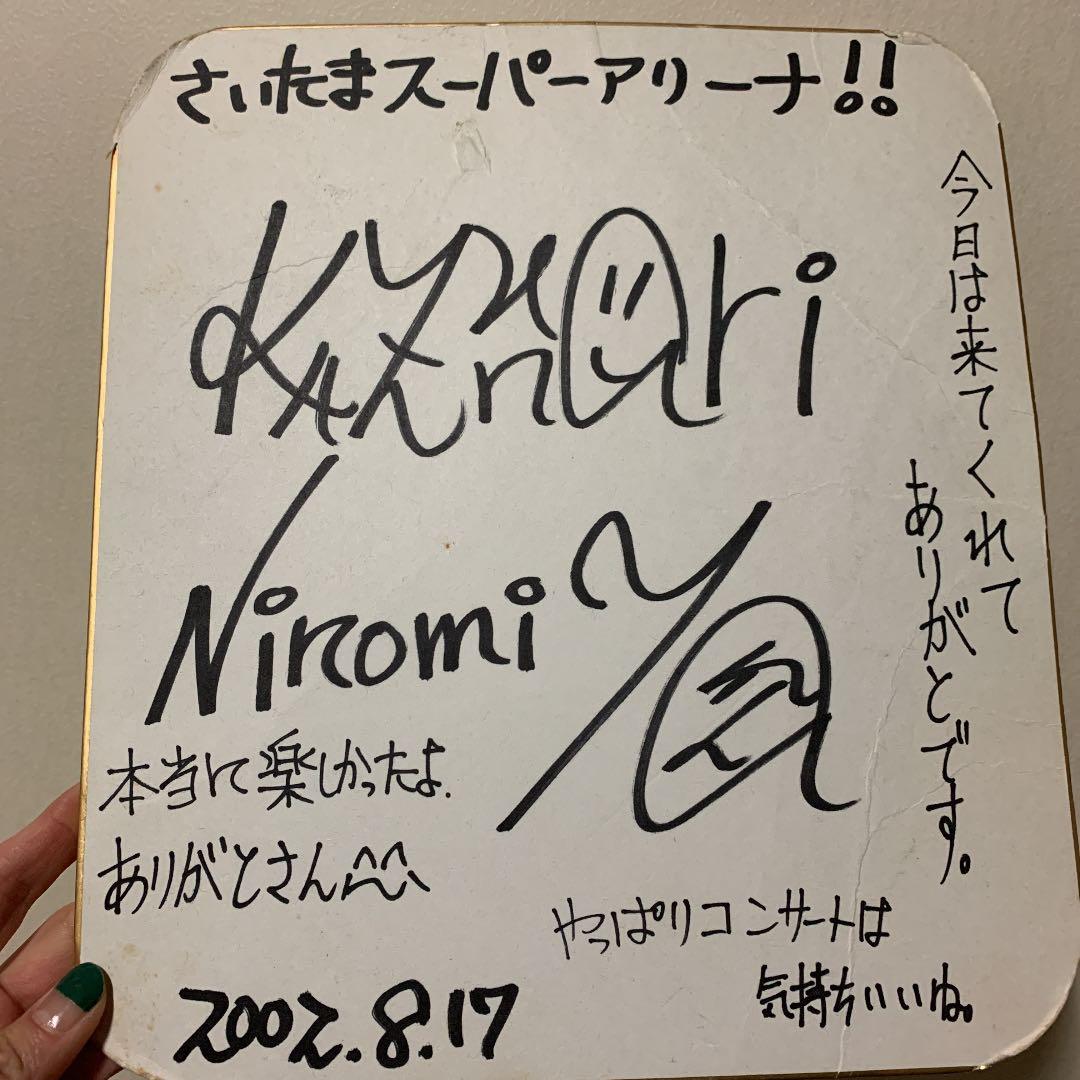 さいたまスーパーアリーナ!!
今日は来てくれて
ありがとです。
Kazunori
Niromi
本当に楽しかったよ.
ありがとさん^^
やっぱりコンサートは
気持ちいいね。
2002.8.17